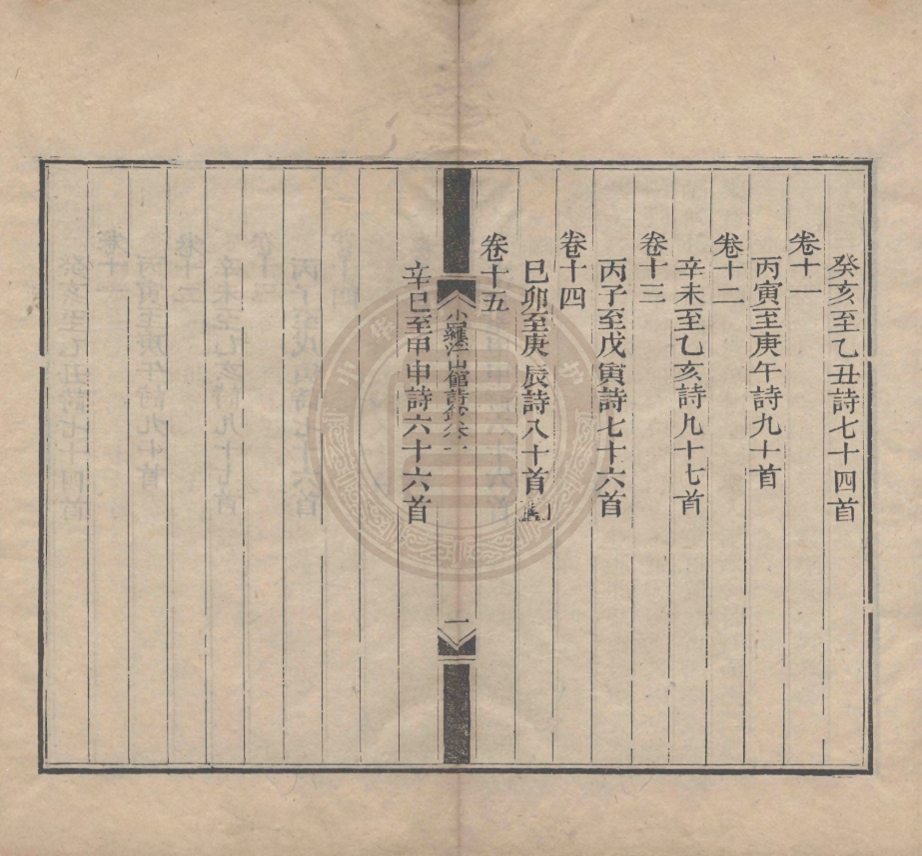 癸亥至乙丑詩七十四首
卷十一
丙寅至庚午詩九十首
卷十二
辛未至乙亥詩九十七首
卷十三
丙子至戊寅詩七十六首
卷十四
巳卯至庚辰詩八十首
卷十五
小羅浮山館詩鈔
一
辛巳至甲申詩六十六首